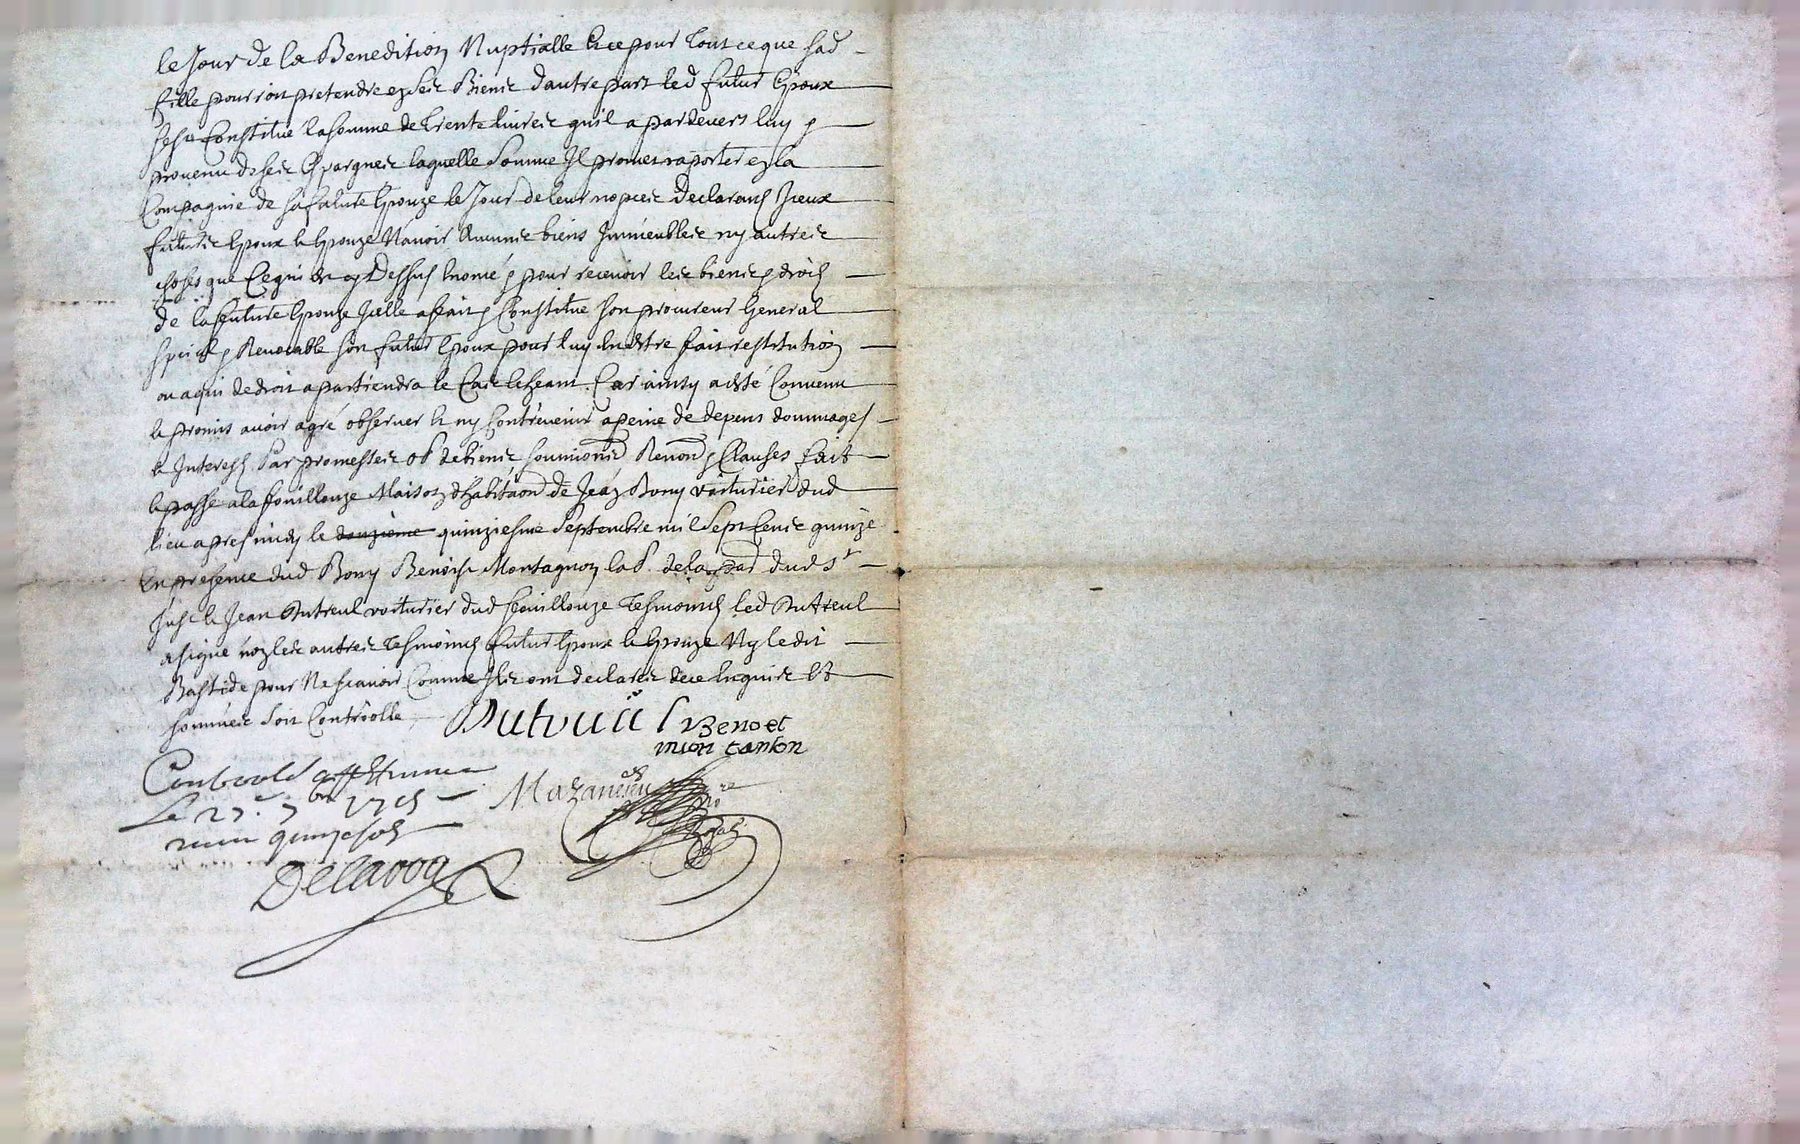 le Jour de la Benedition Nuptialle Et ce pour tout ce que sad
fille pourroit pretendre en ses Biens d'autre part led futur Epoux
sest Constitué la somme de trente livres quil a pardevers luy
provenu de ses Epargnes laquelle Somme Il promet raporter en la
Compagnie de sa future Epouze le Jour de leur nopces declarant Iceux
futurs Epoux & Epouze Navoir Aucuns biens Immeubles ny autres
choses que Ce qui est cy Dessus pour recevoir les biens droits
de la future Epouze Icelle a fait Constitué son procureur General
special Revocable son futur Epoux pour luy En estre fait restitution
ou a qui de droit apartiendra le Cas Escheant. Car ainsy a esté Convenu
& promis avoir agré observer & ny Contrevenir a peine de depens dommages
& Interests Par promesses ob de biens soumions Renon Clauses fait
& passé a la fouillouze Maison d'habitaon de Jean Bony voiturier dud
lieu apres midy le douzieme quinziesme Septembre mil Sept Cens quinze
En presence dud Bony Benoist Montagnon lab. de la par dud St
Just & Jean Dutreul voiturier dud feouillouze Tesmoins led Dutreul
a signé non les autres Tesmoins futur Epoux & Epouze Ny ledit
Bastide pour Ne scavoir Comme Ils ont declarés de ce Enquis Et
sommés Soit Controollé
Dutreuil Benoet
Controolé a St
Le 27.e 7bre 1715
receu quinze sols
Delaroa